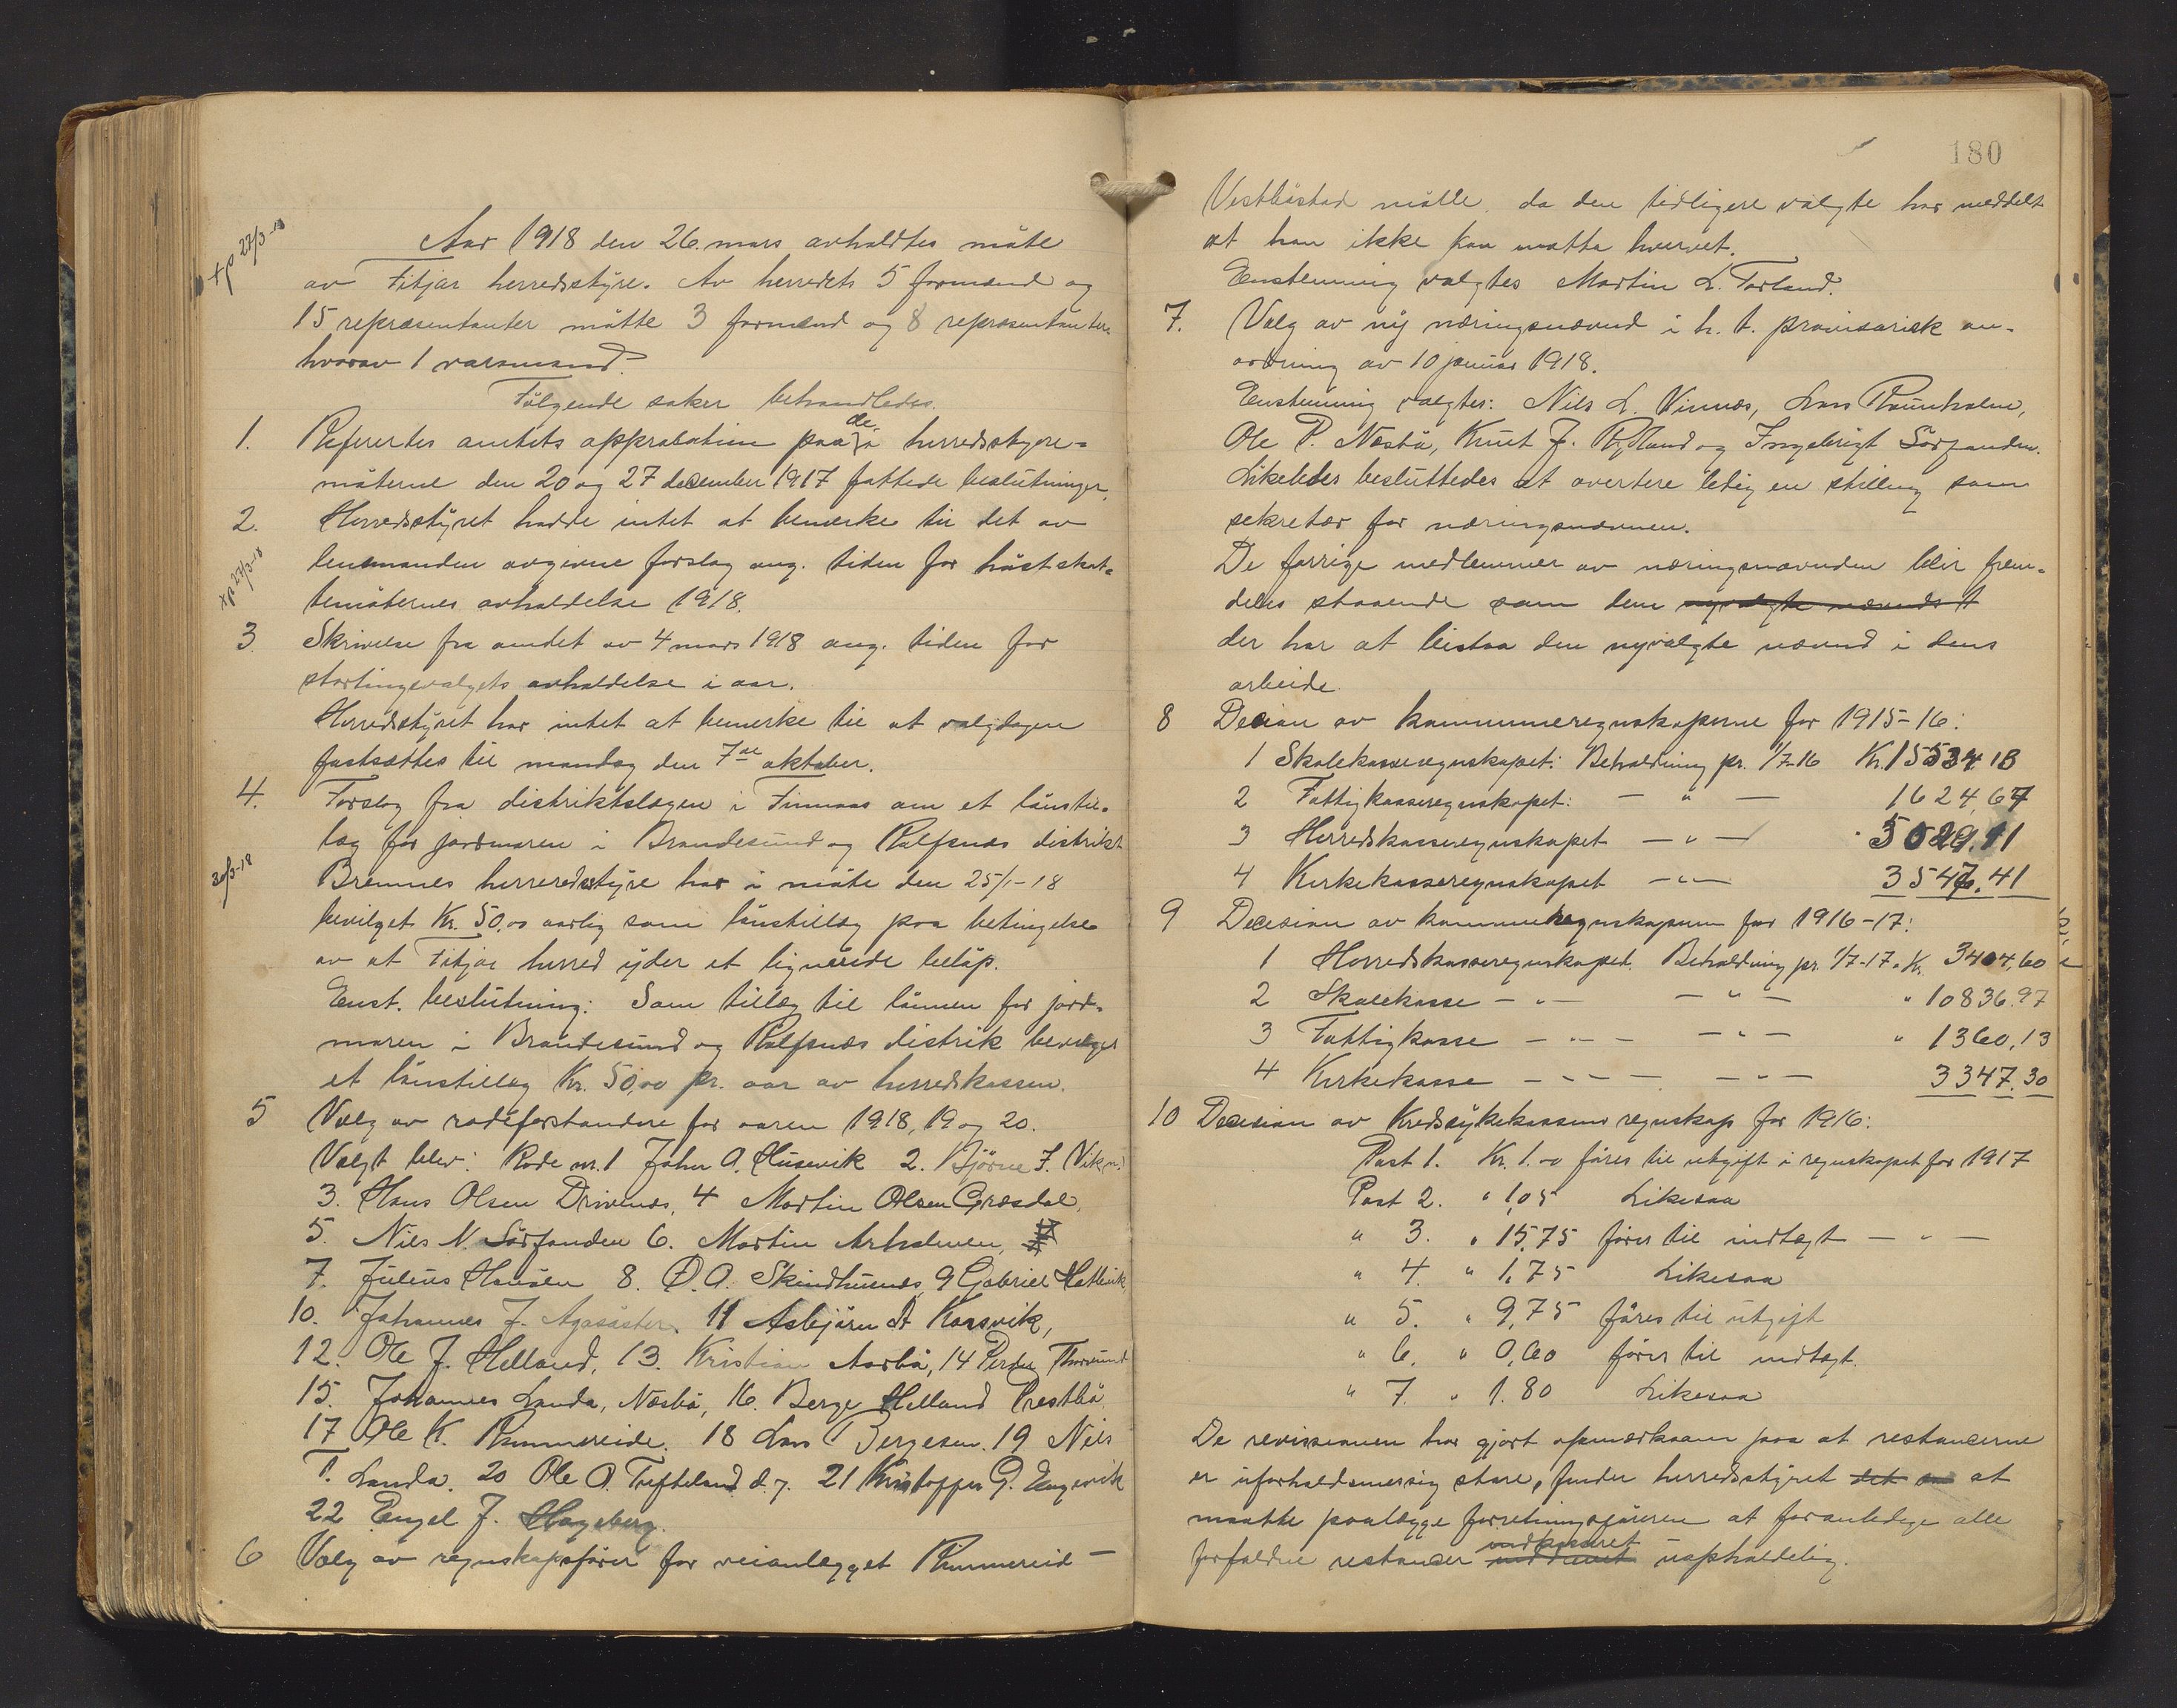 xp 27/3-18
Aar 1918 den 26. mars avholdtes møte
av Fitjar herredsstyre. Av herredets 5 formænd og
15 repræsentanter møtte 3 formænd og 8 repræsentanter
hvorav 1 varamand.
Følgende saker behandledes.
1. Refertes amtets approbation paa de i herredsstyre-
møterne den 20 og 27 december 1917 fattede beslutninger.
2. Herredsstyret hadde intet at bemerke til det av
xp 27/3-18
lensmanden avgivne forslag ang. tiden for høstskat-
temøternes avholdelse 1918.
3 Skrivelse fra amtet av 4 mars 1918 ang. tiden for
stortingsvalgets avholdelse i aar.
Herredsstyret har intet at bemerke til at valgdagen
fastsættes til mandag den 7de oktober.
4. Forslag fra distriktslægen i Finnaas om et lønstil-
læg for jordmoren i Brandesund og Rolfsnæs distrikt
30/3-18
Bremnes herreredsstyre har i møte den 25/1-18
bevilget Kr. 50.00 aarlig som lønstillæg paa betingelse
av at Fitjar herred yder et lignende beløp.
Enst. beslutning: Som tillæg til lønnen for jord-
moren i Brandesund og Rolfsnæs distrik bevilges
et lønstillæg Kr. 50,00 pr. aar av herredskassen.
5 Valg av rodeforstandere for aaren 1918, 19 og 20.
Valgt blev: Rode nr. 1 John O. Husevik 2. Bjørne J. Vik
3. Hans Olsen Drivenes, 4 Martin Olsen Græsdal,
5. Nils N. Sørfonden 6. Martin Arholmen,
7. Julius Hansen 8. O. O. Skindhuenæs, 9 Gabriel Hatlevik
10. Johannes J. Agasøster 11 Asbjørn A Korsvik,
12. Ole J. Helland, 13. Kristian Aarbø, 14 Peder Thorsund
15. Johannes Landa, Næsbø, 16. Berge Helland Prestbø
17 Ole K. Rimmereide. 18 Lars Bergesen. 19 Nils
T. Landa. 20 Ole O. Tufteland d. y. 21 Kristoffer G. Engevik
22 Engel J. Hageberg.
6 Valg av regnskapsfører for veianlægget Rimmereid -
180
Vestbøstad mølle. da den tidligere valgte har meddelt
at han ikke kan motta hvervet.
Enstemmig valgtes Martin L. Torland.
7. Valg av ny næringsnævnd i h. t. provisorisk an-
ordning av 10 januar 1918.
Enstemmig valgtes: Nils L. Vinnæs, Lars Raunholm,
Ole P. Næsbø, Knut J. Rydland og Ingebrigt Sørfonden.
Likeledes besluttedes at avertere ledig en stilling som
sekretær for næringsnævnen.
De forrige medlemmer av næringsnævnden blir frem-
deles staaende som dem nyvalgte nævnds t
der har at bistaa den nyvalgte nævnd i dens
arbeide.
8 Decion av kommuneregnskaperne for 1915-16:
1 Skolekasseregnskapet: Beholdning pr. 1/7-16 Kr. 15534.18
2 Fattigkasseregnskapet: — " — 1624,67
3 Herredskasseregnskapet — " —
4 Kirkekasseregnskapet — " — 3547.41
9 Decision av kommuneregnskapene for 1916-17:
1 Herredskasseregnskapet. Beholdning pr. 1/7-17. Kr. 3404,60
2 Skolekasse — " — — " — " 10836.97
3 Fattigkasse — " — — " — " 1360,13
4 Kirkekasse — " — — " — 3347.30
10 Decision av Kredssykekassens regnskap for 1916:
Post 1. Kr. 1.00 føres til utgift i regnskapet for 1917
Post 2. " 1,05 Likesaa
" 3. " 15,75 føres til indtægt — " —
" 4. " 1,75 Likesaa
" 5. " 9,75 føres til utgift
" 6. " 0,60 føres til indtægt.
" 7. " 1.80 Likesaa
De revissionen har gjort opmerksom paa at restancerne
er uforholdsmessig store, finder herredsstyret det at
maatte paalægge forretningsføreren at foranledige alle
forfaldne restancer inddrevet indkasseret uopholdelig.